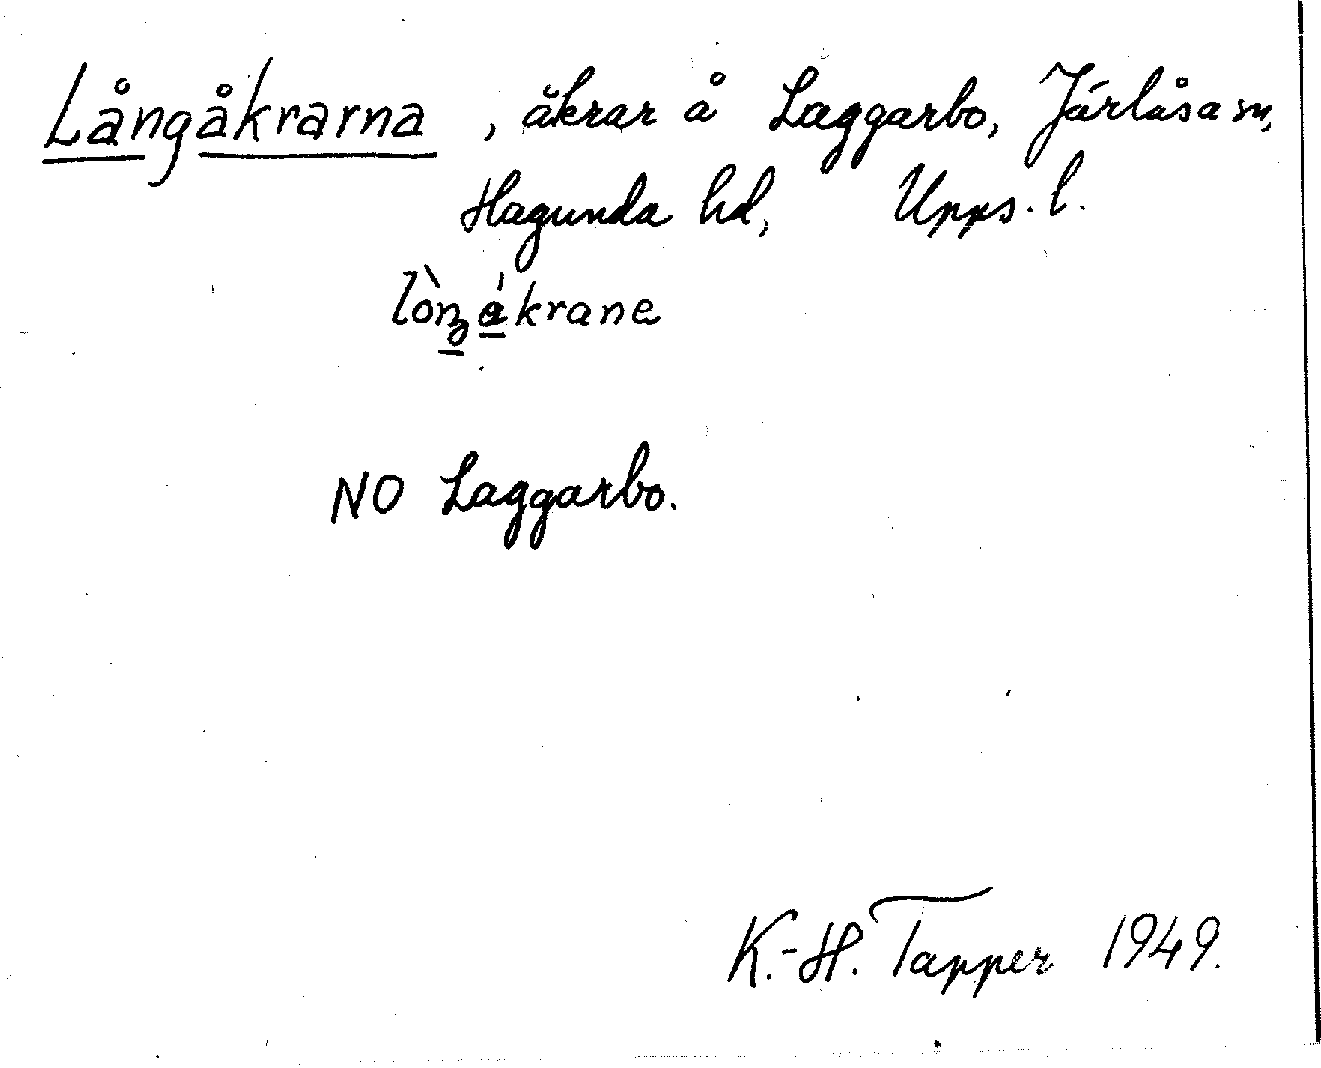 Långåkrarna, åkrar å Laggarbo, Järlåsa sn,
Hagunda hd, Upps. l.
lòŋákrane
NO Laggarbo.
K.-H. Tapper 1949.